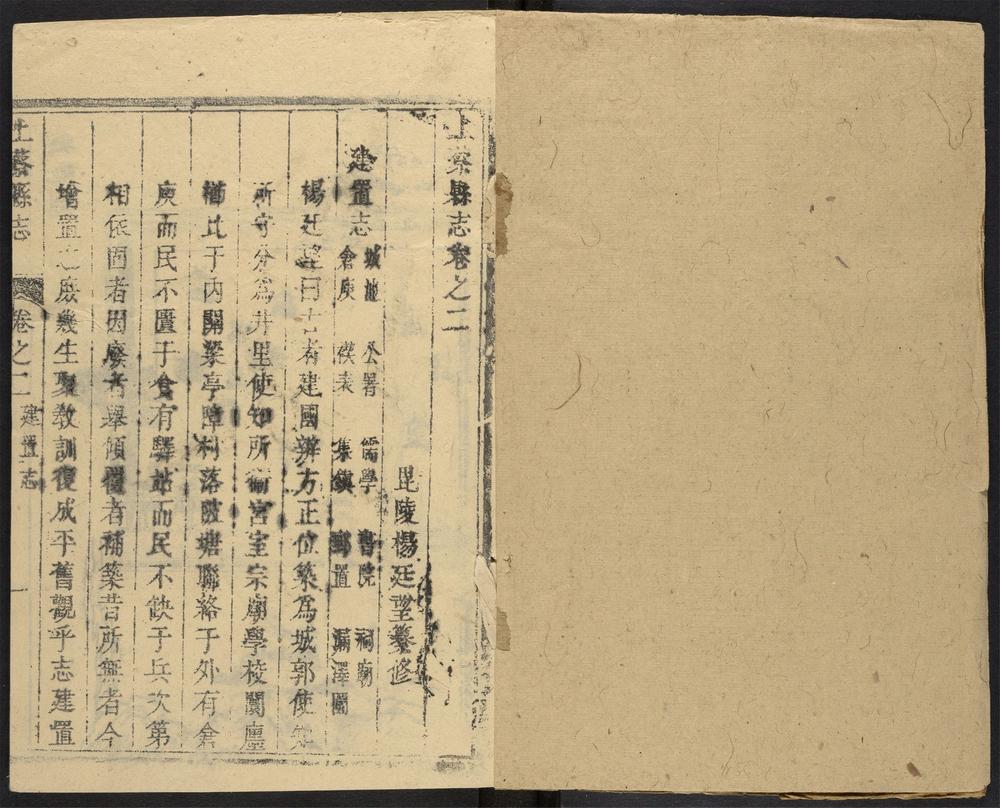 上蔡縣志卷之二
毘陵楊廷望纂修
建置志
城池 公署 儒學 書院 祠廟
倉庾 禖表 集鎮 郵置 漏澤園
楊廷望曰古者建國辨方正位築為城郭使知
所守分為井里使知所衛宮室宗廟學校闤廛
櫛比于內關梁亭障村落陂塘聯絡于外有倉
庾而民不匱于食有驛站而民不缺于兵次第
相依固者因廢者舉傾覆者補築昔所無者今
增置之庶幾生聚教訓復成平舊觀乎志建置
上蔡縣志
卷之二 建置志
一